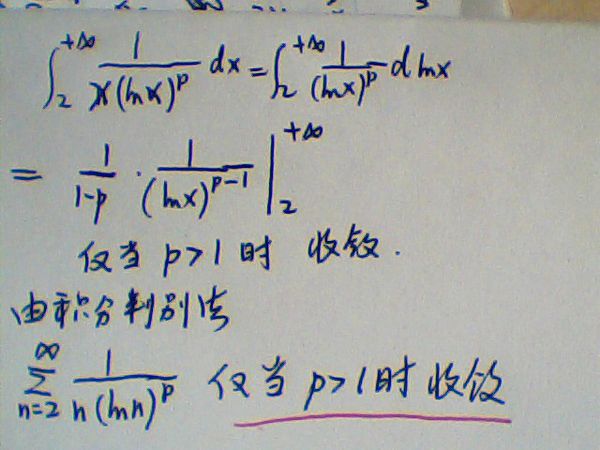 ∫₂^{+∞} 1/(x(lnx)^p) dx = ∫₂^{+∞} 1/(lnx)^p d lnx
= 1/(1-p) · 1/(lnx)^{p-1} |₂^{+∞}
仅当 p>1 时 收敛.
由积分判别法
∑_{n=2}^{∞} 1/(n(lnn)^p) 仅当 p>1时收敛